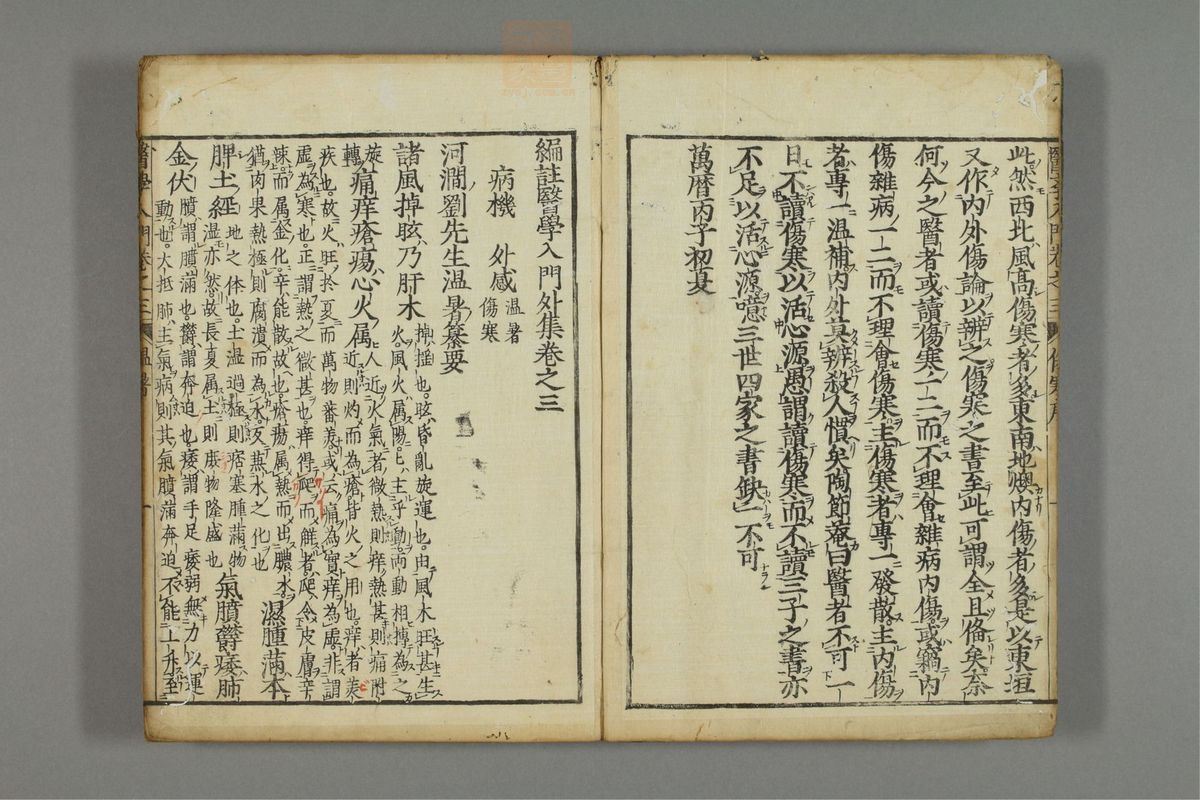 此然西北風高傷寒者多東南地燠内傷者多是以東垣
又作内外傷論以辨之傷寒之書至此可謂全且俻矣奈
何今之醫者或讀傷寒一二而不理會雜病内傷或竊内
傷雜病一二而不理會傷寒主傷寒者專一發散主内傷
者專一温補内外莫辨殺人慣矣陶節菴曰醫者不可一
日不讀傷寒以活心源愚謂讀傷寒而不讀三子之書亦
不足以活心源噫三世四家之書缺一不可
萬暦丙子初夏
編註醫學入門外集卷之三
病機 外感 温暑
傷寒
河澗劉先生温暑纂要
諸風掉眩乃肝木 掉揺也眩昏亂旋運也由風木旺甚生
火風火属陽巳主乎動両動相摶為之
旋
轉 痛痒瘡瘍心火属 人近火氣者微熱則痒熱甚則痛附
近則灼而為瘡皆火之用也痒者美
疾也故火旺於夏而萬物蕃美或云痛為實痒為虚非謂
虚為寒也正謂熱之微甚也痒得爬而觧者爬令皮膚辛
辣而属金化辛能散故也瘡瘍属熱而出膿水
猶肉果熱極則腐潰而為水反蒸水之化也
濕腫滿本
脾土經 地之体也土濕過極則痞塞腫滿物
濕亦然故長夏属土則庶物隆盛也
氣膹欝痿肺
金伏 膹謂膹滿也欝謂奔迫也痿謂手足痿弱無力以運
動也大抵肺主氣病則其氣膹滿奔迫不能上升至
醫學入門卷之三 温暑